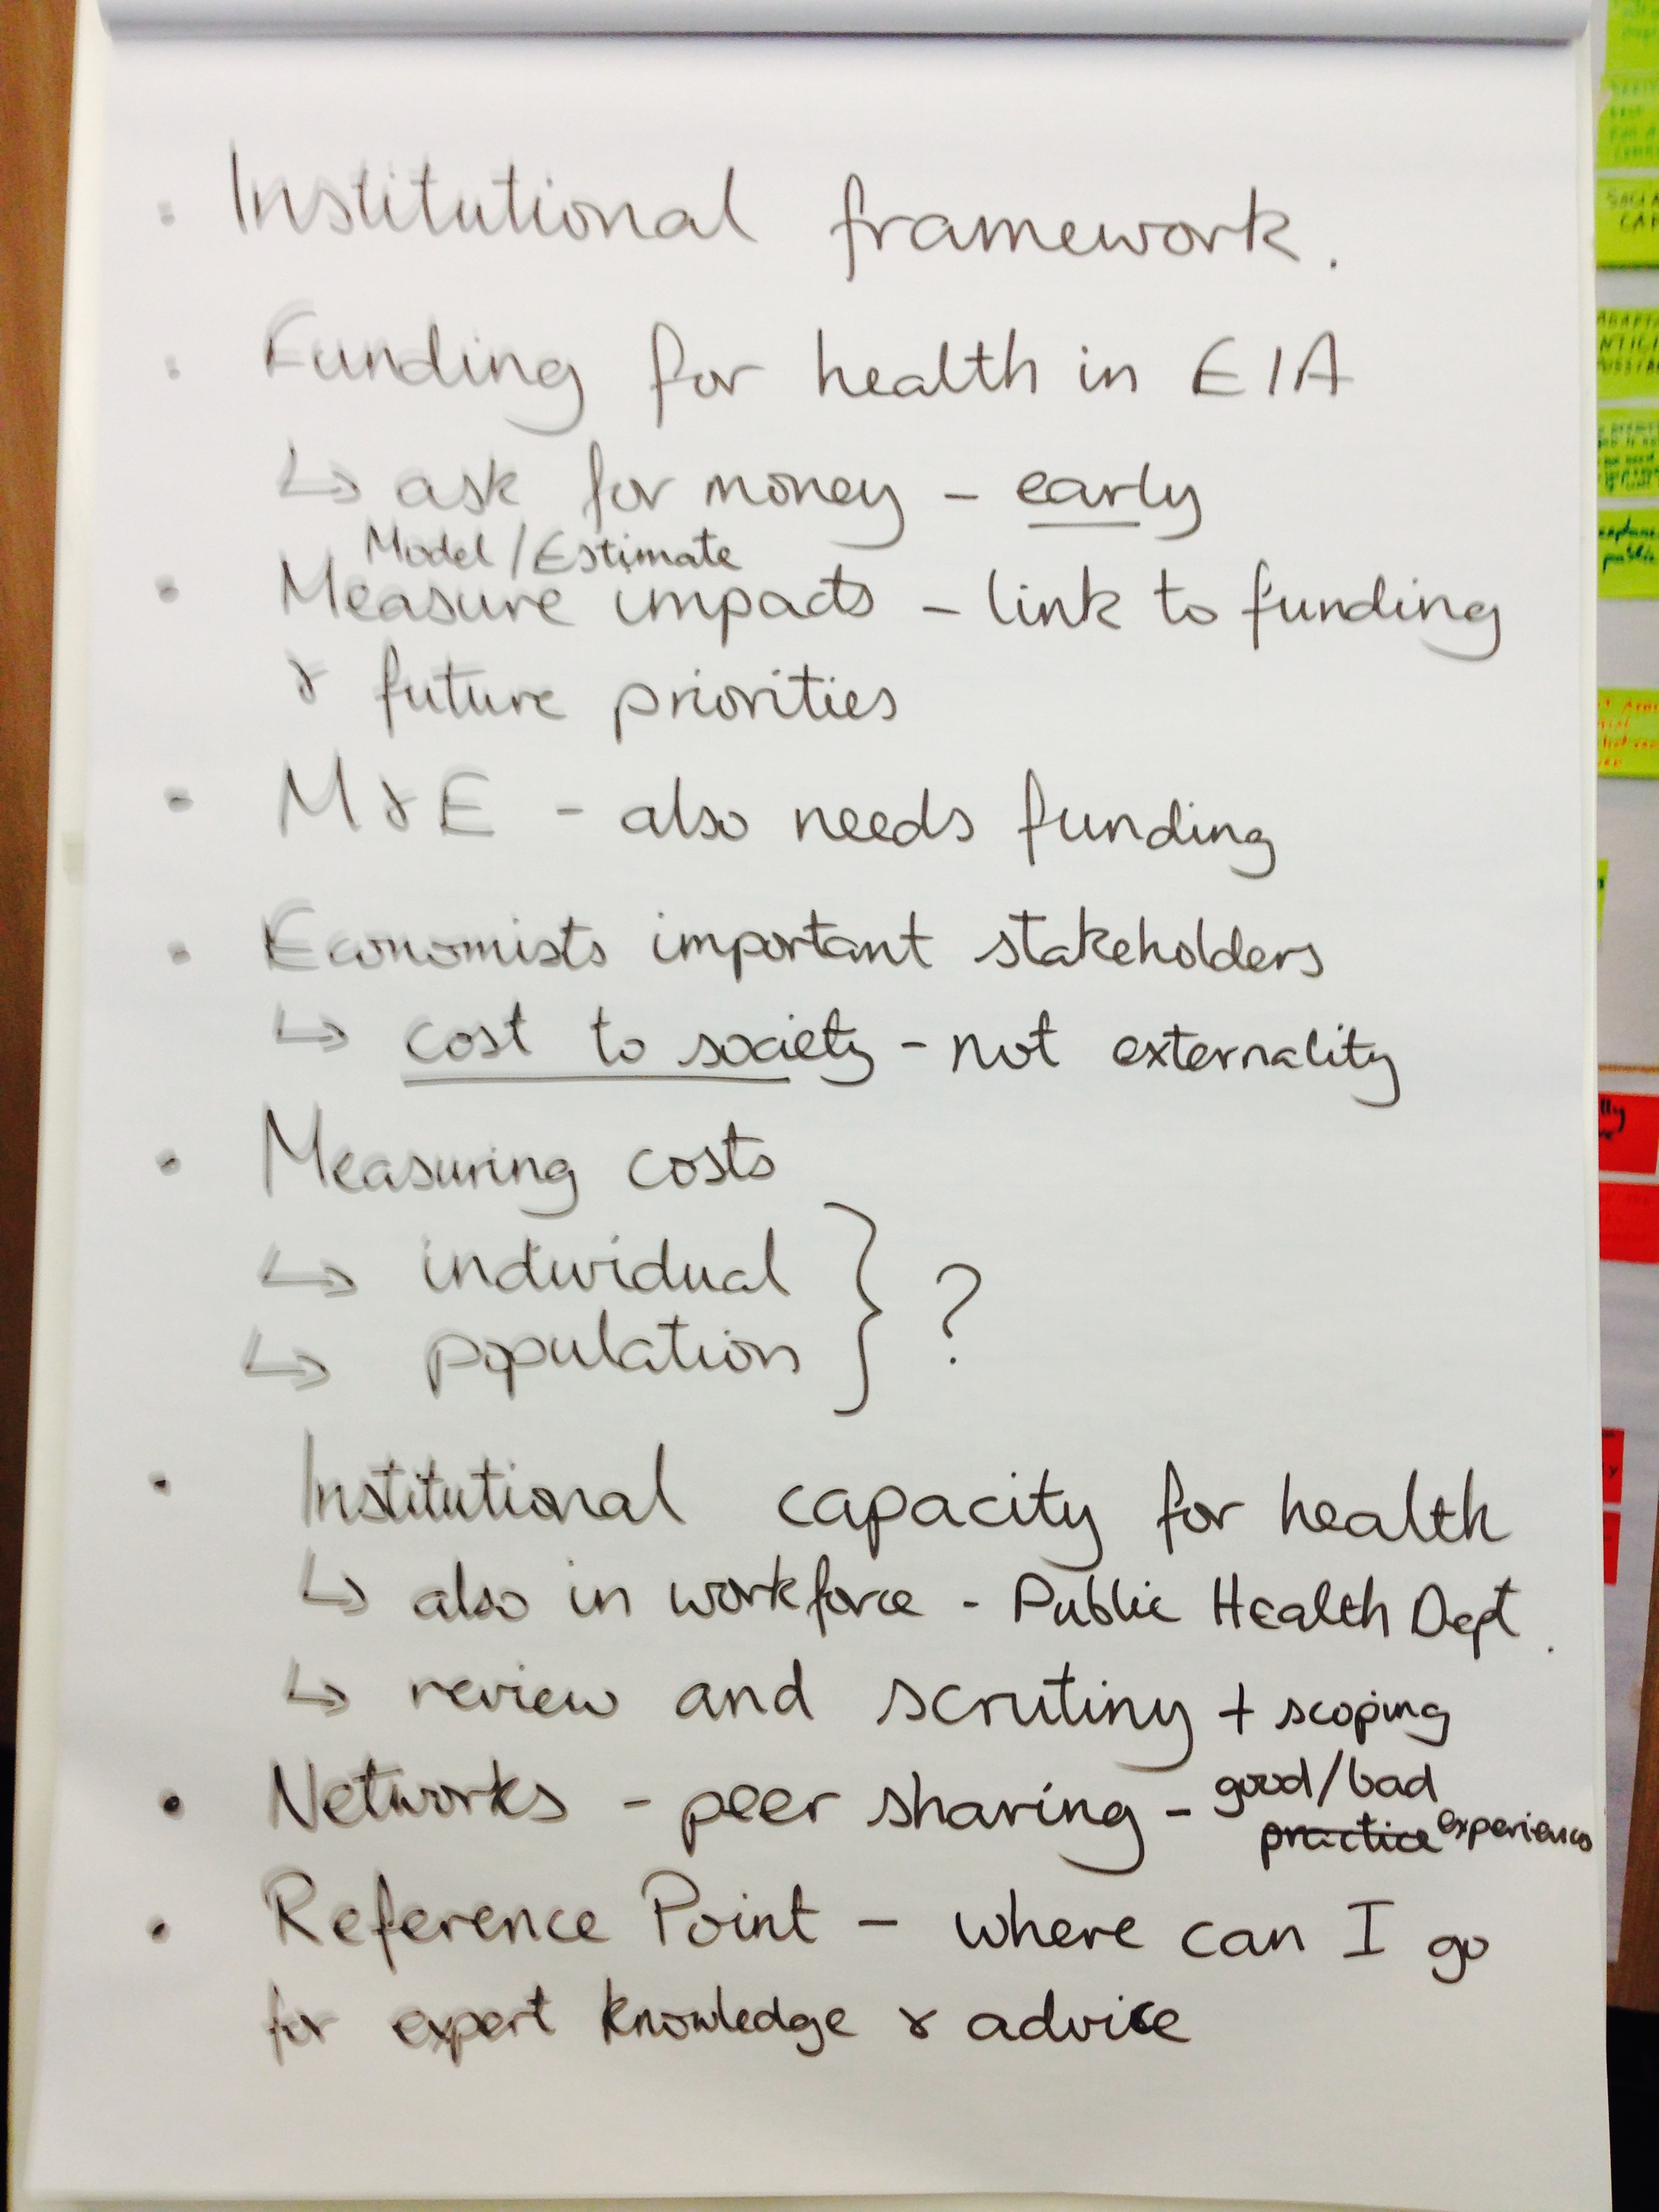 • Institutional framework.
• Funding for health in EIA
↳ ask for money - early
Model/Estimate
• Measure impacts - link to funding
& future priorities
• M&E - also needs funding
• Economists important stakeholders
↳ cost to society - not externality
• Measuring costs
↳ individual } ?
↳ population
• Institutional capacity for health
↳ also in workforce - Public Health Dept.
↳ review and scrutiny + scoping
• Networks - peer sharing - good/bad
practice experience
• Reference Point - where can I go
for expert knowledge & advice